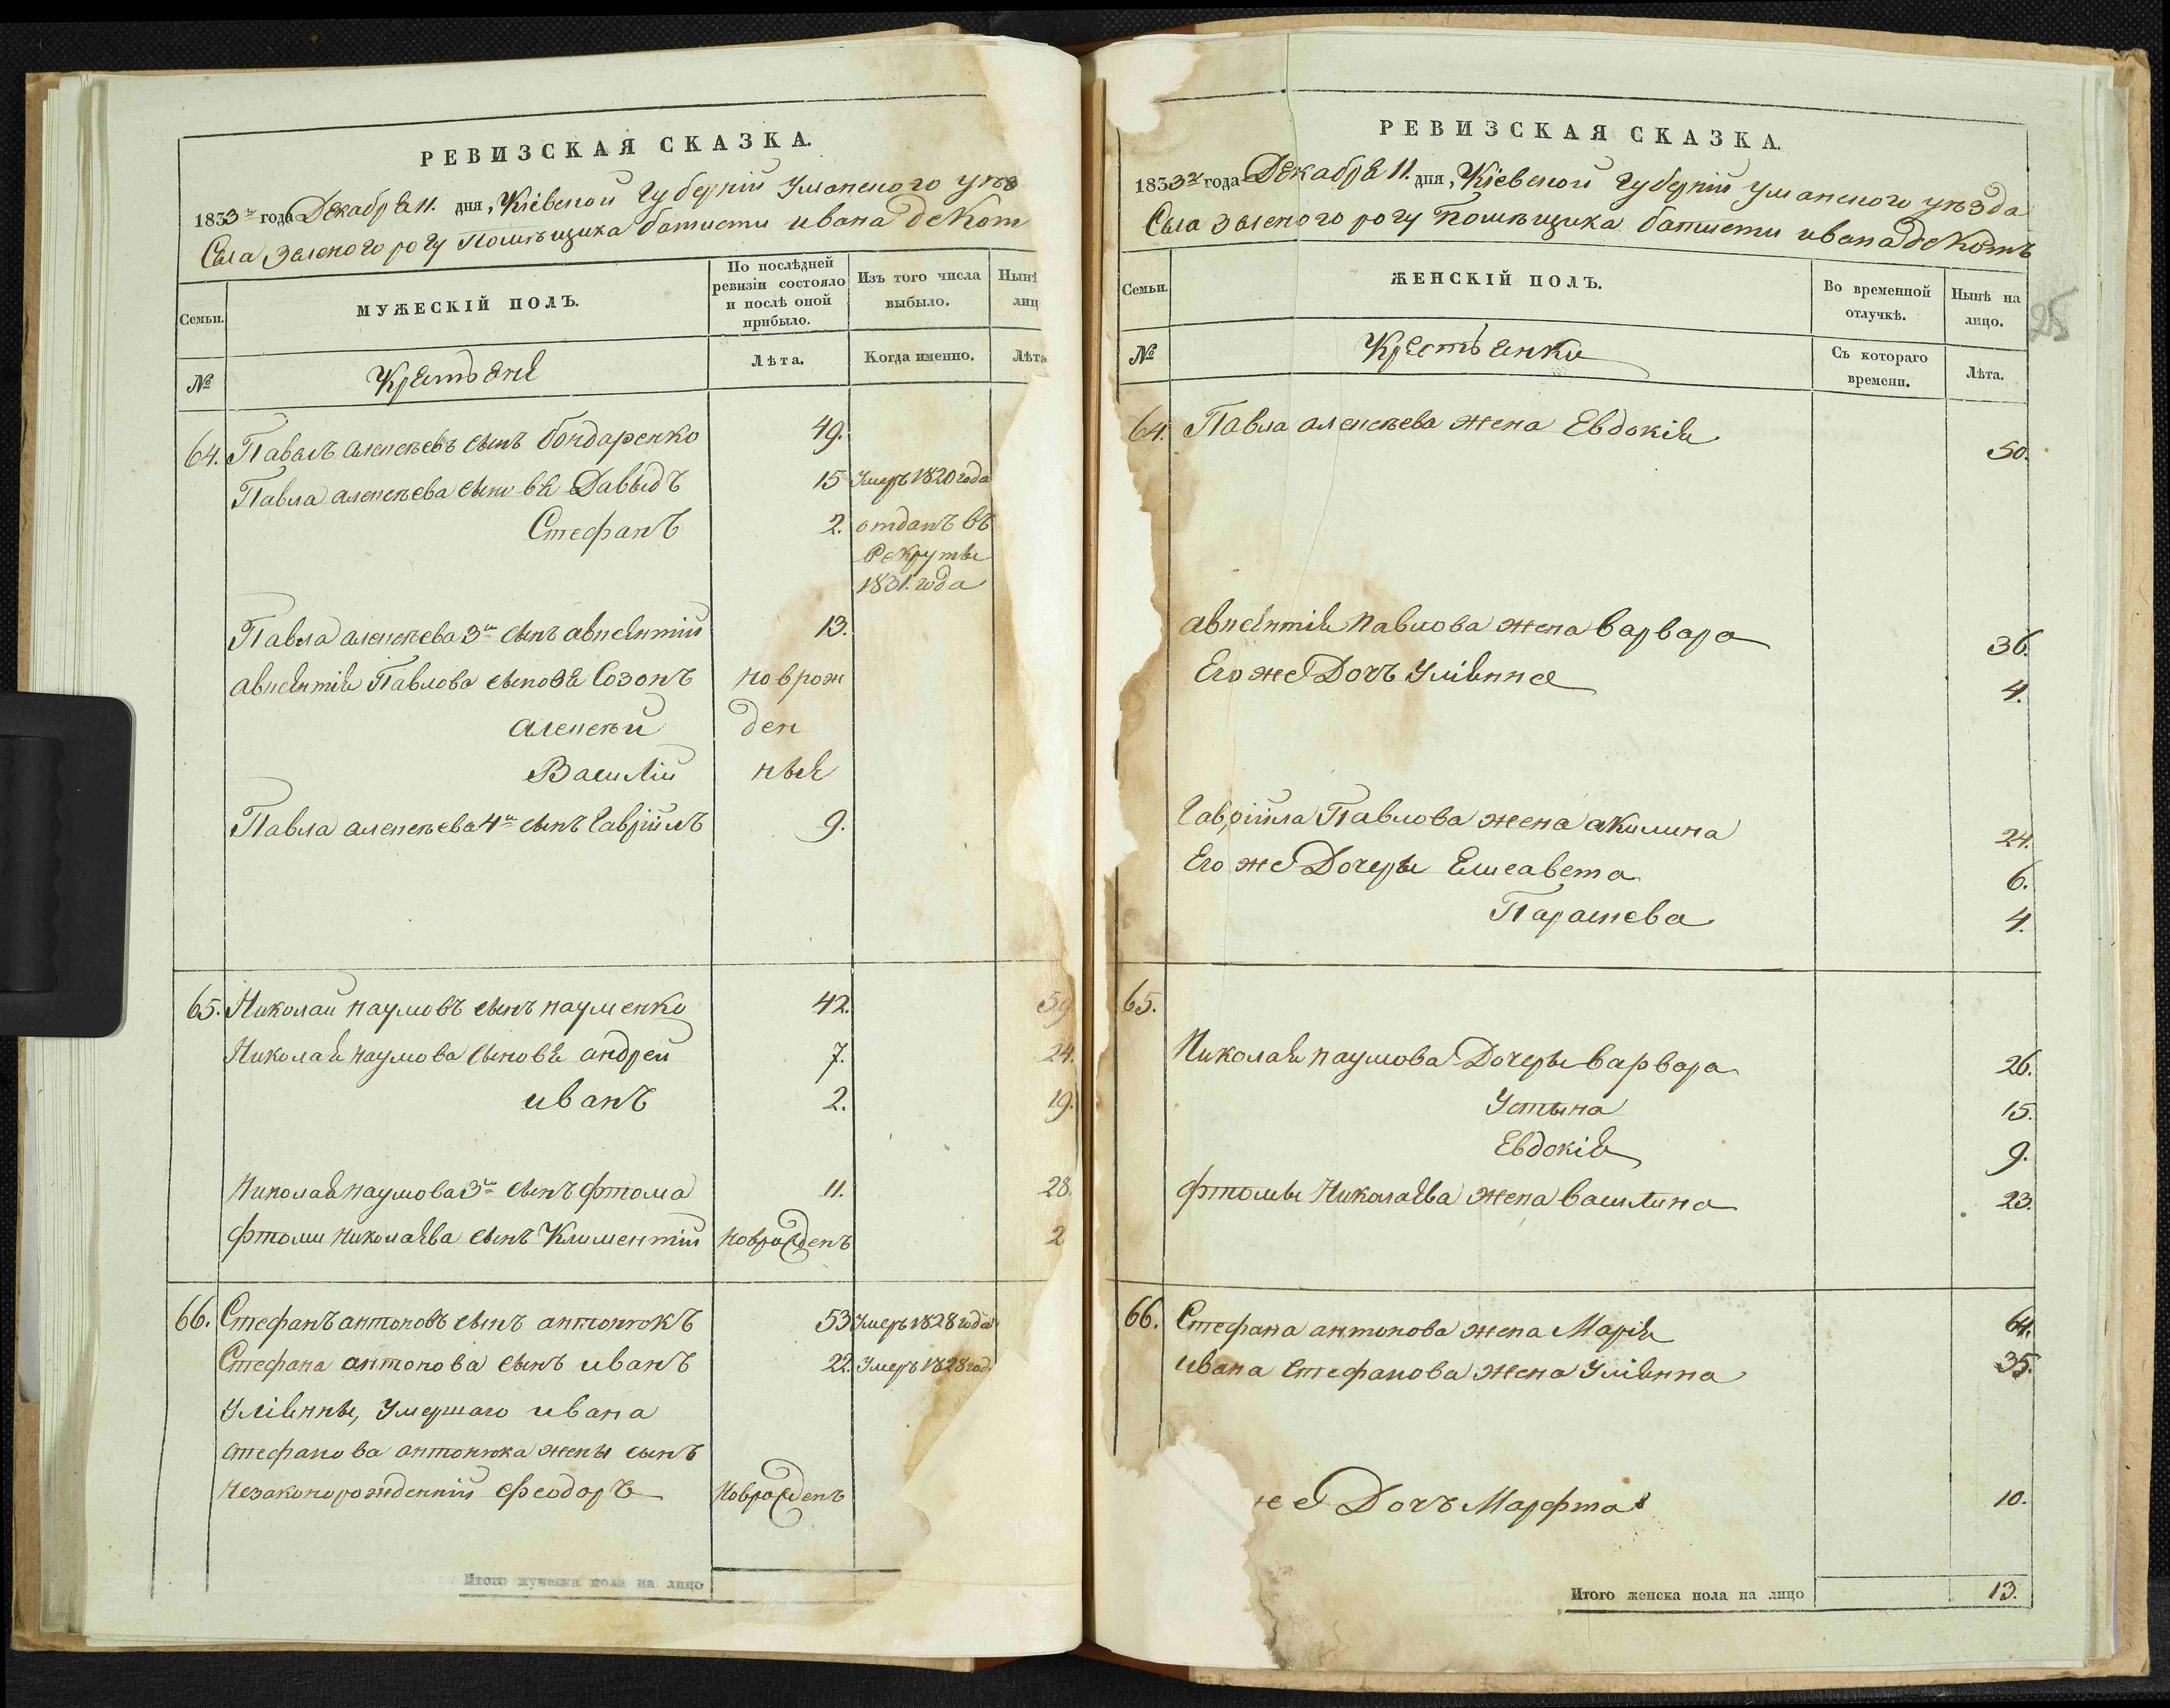 РЕВИЗСКАЯ СКАЗКА.
1833го года Декабря 11. дня, Кіевской Губерніи Уманского уѣз
Села Зеленого рогу Помѣщика батисти ивана деКот
Семьи.
МУЖЕСКІЙ ПОЛЪ.
По послѣдней ревизіи состояло и послѣ оной прибыло.
Изъ того числа выбыло.
Нынѣ лиц
№
Крестьяне
Лѣта.
Когда именно.
Лѣта
64. Павелъ алексѣевъ сынъ бондаренко 49.
Павла алексѣева сыновья Давыдъ 15 Умеръ 1820 года
Стефанъ 2. отданъ въ
Рекруты
1831. года
Павла алексѣева 3й сынъ авксентій 13.
авксентія Павлова сыновья Созонъ новрож
алексѣй ден
Василій ныя
Павла алексѣева 4й сынъ Гавріилъ 9.
65. Николай наумовъ сынъ науменко 42. 59
Николая наумова сыновья андрей 7. 24.
иванъ 2. 19.
Николая наумова 3й сынъ фтома 11. 28.
фтоми николаева сынъ Климентій новрожденъ 2
66. Стефанъ антоновъ сынъ антонюкъ 53 Умеръ 1828 года
Стефана антонова сынъ иванъ 22. Умеръ 1828 год
Уліянны, Умершаго ивана
стефанова антонюка жены сынъ
незаконорожденній феодоръ новрожденъ
Итого мужеска пола на лицо
РЕВИЗСКАЯ СКАЗКА.
1833го года Декабря 11. дня, Кіевской Губерніи Уманского уѣзда
Села Зеленого рогу Помѣщика батисти ивана деКотъ
25
Семьи.
ЖЕНСКІЙ ПОЛЪ.
Во временной отлучкѣ.
Нынѣ на лицо.
№
Крестьянки
Съ котораго времени.
Лѣта.
64. Павла алексѣева жена Евдокія 50.
авксентія Павлова жена варвара 36.
Его же Дочъ Уліянна 4.
Гавріила Павлова жена акилина 24.
Его же Дочеры Елисавета 6.
Параскева 4.
65.
Николая наумова Дочеры варвара 26.
Устына 15.
Евдокія 9.
фтомы Николаева жена василина 23.
66. Стефана антонова жена Марія 64.
ивана стефанова жена Уліянна 35.
же Дочъ Марфта 10.
Итого женска пола на лицо 13.